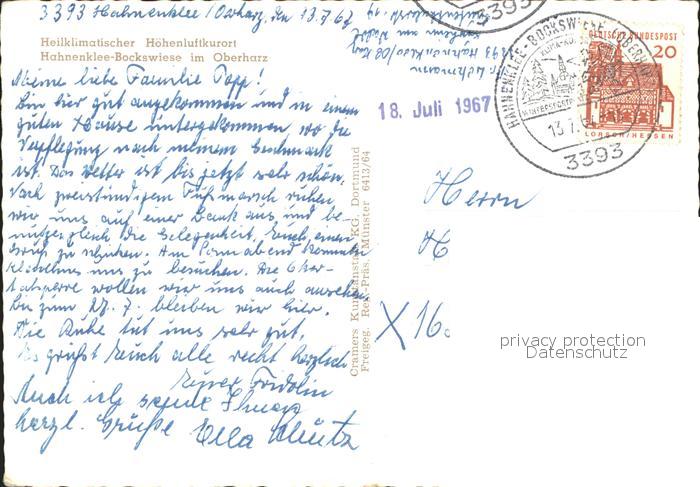 3393 Hahnenklee/Oberharz, den 13.7.67
Heilklimatischer Höhenluftkurort
Hahnenklee-Bockswiese im Oberharz
Meine liebe Familie Popp!
Bin hier gut angekommen und in einem
guten Hause untergekommen, wo die
Verpflegung nach meinem Geschmack
ist. Das Wetter ist bis jetzt sehr schön.
Nach zweistündigem Fußmarsch ruhen
wir uns auf einer Bank aus und be-
nutzen gleich die Gelegenheit, Euch einen
Gruß zu schicken. Am Sonnabend kommen
uns zu besuchen. Die Oker-
talsperre wollen wir uns auch ansehen.
Bis zum 27.7. bleiben wir hier.
Die Ruhe tut uns sehr gut.
Es grüßt Euch alle recht herzlich
Euer Fridolin
Auch ich sende Ihnen
herzl. Grüße Ella
3393 Hahnenklee/
18. Juli 1967
Cramers Kunstanstalt KG, Dortmund
Freigeg. Reg.-Präs. Münster 6413/64
3393
HAHNENKLEE-BOCKSWIESE (OBERHARZ)
WINTERSPORTPLATZ
13.7.67
3393
DEUTSCHE BUNDESPOST
20
LORSCH/HESSEN
Herrn
X 16.
privacy protection
Datenschutz